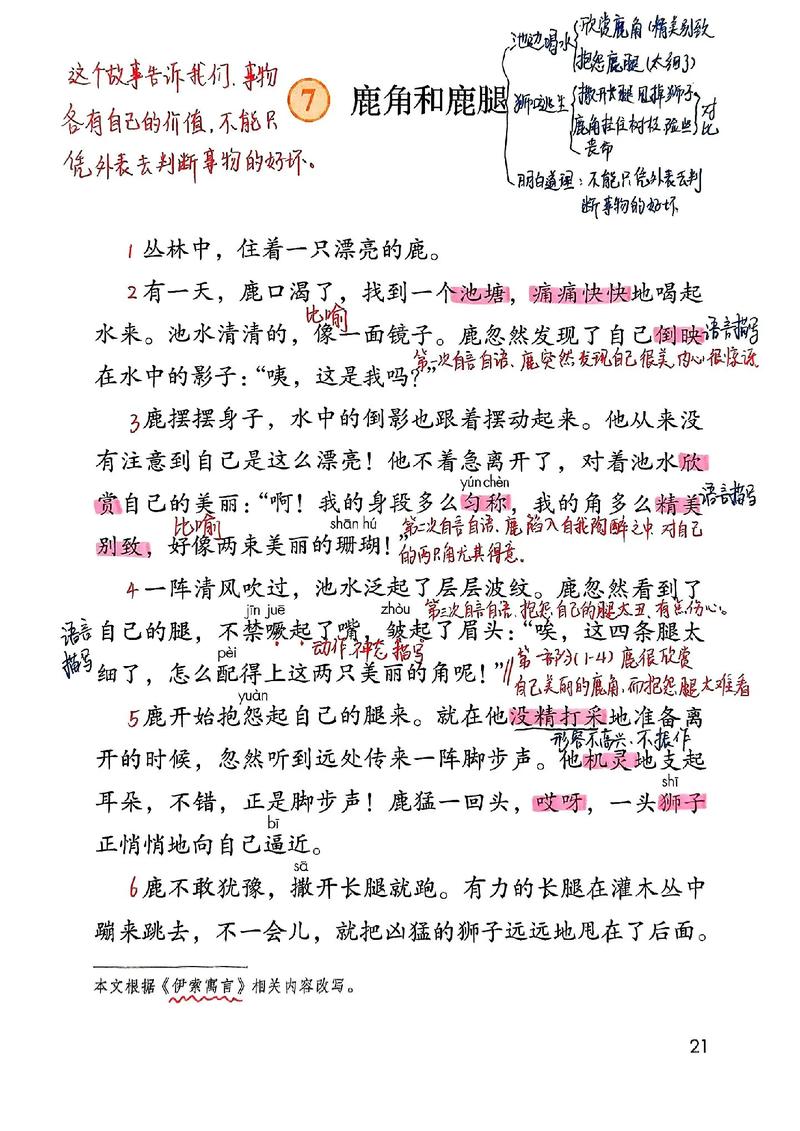 这个故事告诉我们，事物
各有自己的价值，不能只
凭外表去判断事物的好坏。
7 鹿角和鹿腿
池边喝水 欣赏鹿角（精美别致）
抱怨鹿腿（太细了）
狮口逃生 撒开长腿 甩掉狮子
鹿角挂住树枝 险些
丧命
对比
明白道理：不能只凭外表去判
断事物的好坏
1 丛林中，住着一只漂亮的鹿。
2 有一天，鹿口渴了，找到一个池塘，痛痛快快地喝起
比喻
水来。池水清清的，像一面镜子。鹿忽然发现了自己倒映
语言描写
第一次自言自语，鹿突然发现自己很美，内心很惊讶
在水中的影子：“咦，这是我吗？”
3 鹿摆摆身子，水中的倒影也跟着摆动起来。他从来没
有注意到自己是这么漂亮！他不着急离开了，对着池水欣
yún chèn
赏自己的美丽：“啊！我的身段多么匀称，我的角多么精美
语言描写
比喻
shān hú
第二次自言自语，鹿陷入自我陶醉之中，对自己
别致，好像两束美丽的珊瑚！”
的两只角尤其得意。
4 一阵清风吹过，池水泛起了层层波纹。鹿忽然看到了
jīn juē
zhòu
第三次自言自语，抱怨自己的腿太丑，有点伤心。
语言描写
自己的腿，不禁噘起了嘴，皱起了眉头：“唉，这四条腿太
pèi
动作、神态描写
第一部分（1-4）鹿很欣赏
细了，怎么配得上这两只美丽的角呢！”
自己美丽的鹿角，而抱怨腿太难看
yuàn
5 鹿开始抱怨起自己的腿来。就在他没精打采地准备离
形容不高兴，不振作
开的时候，忽然听到远处传来一阵脚步声。他机灵地支起
shī
耳朵，不错，正是脚步声！鹿猛一回头，哎呀，一头狮子
bī
正悄悄地向自己逼近。
sā
6 鹿不敢犹豫，撒开长腿就跑。有力的长腿在灌木丛中
蹦来跳去，不一会儿，就把凶猛的狮子远远地甩在了后面。
本文根据《伊索寓言》相关内容改写。
21